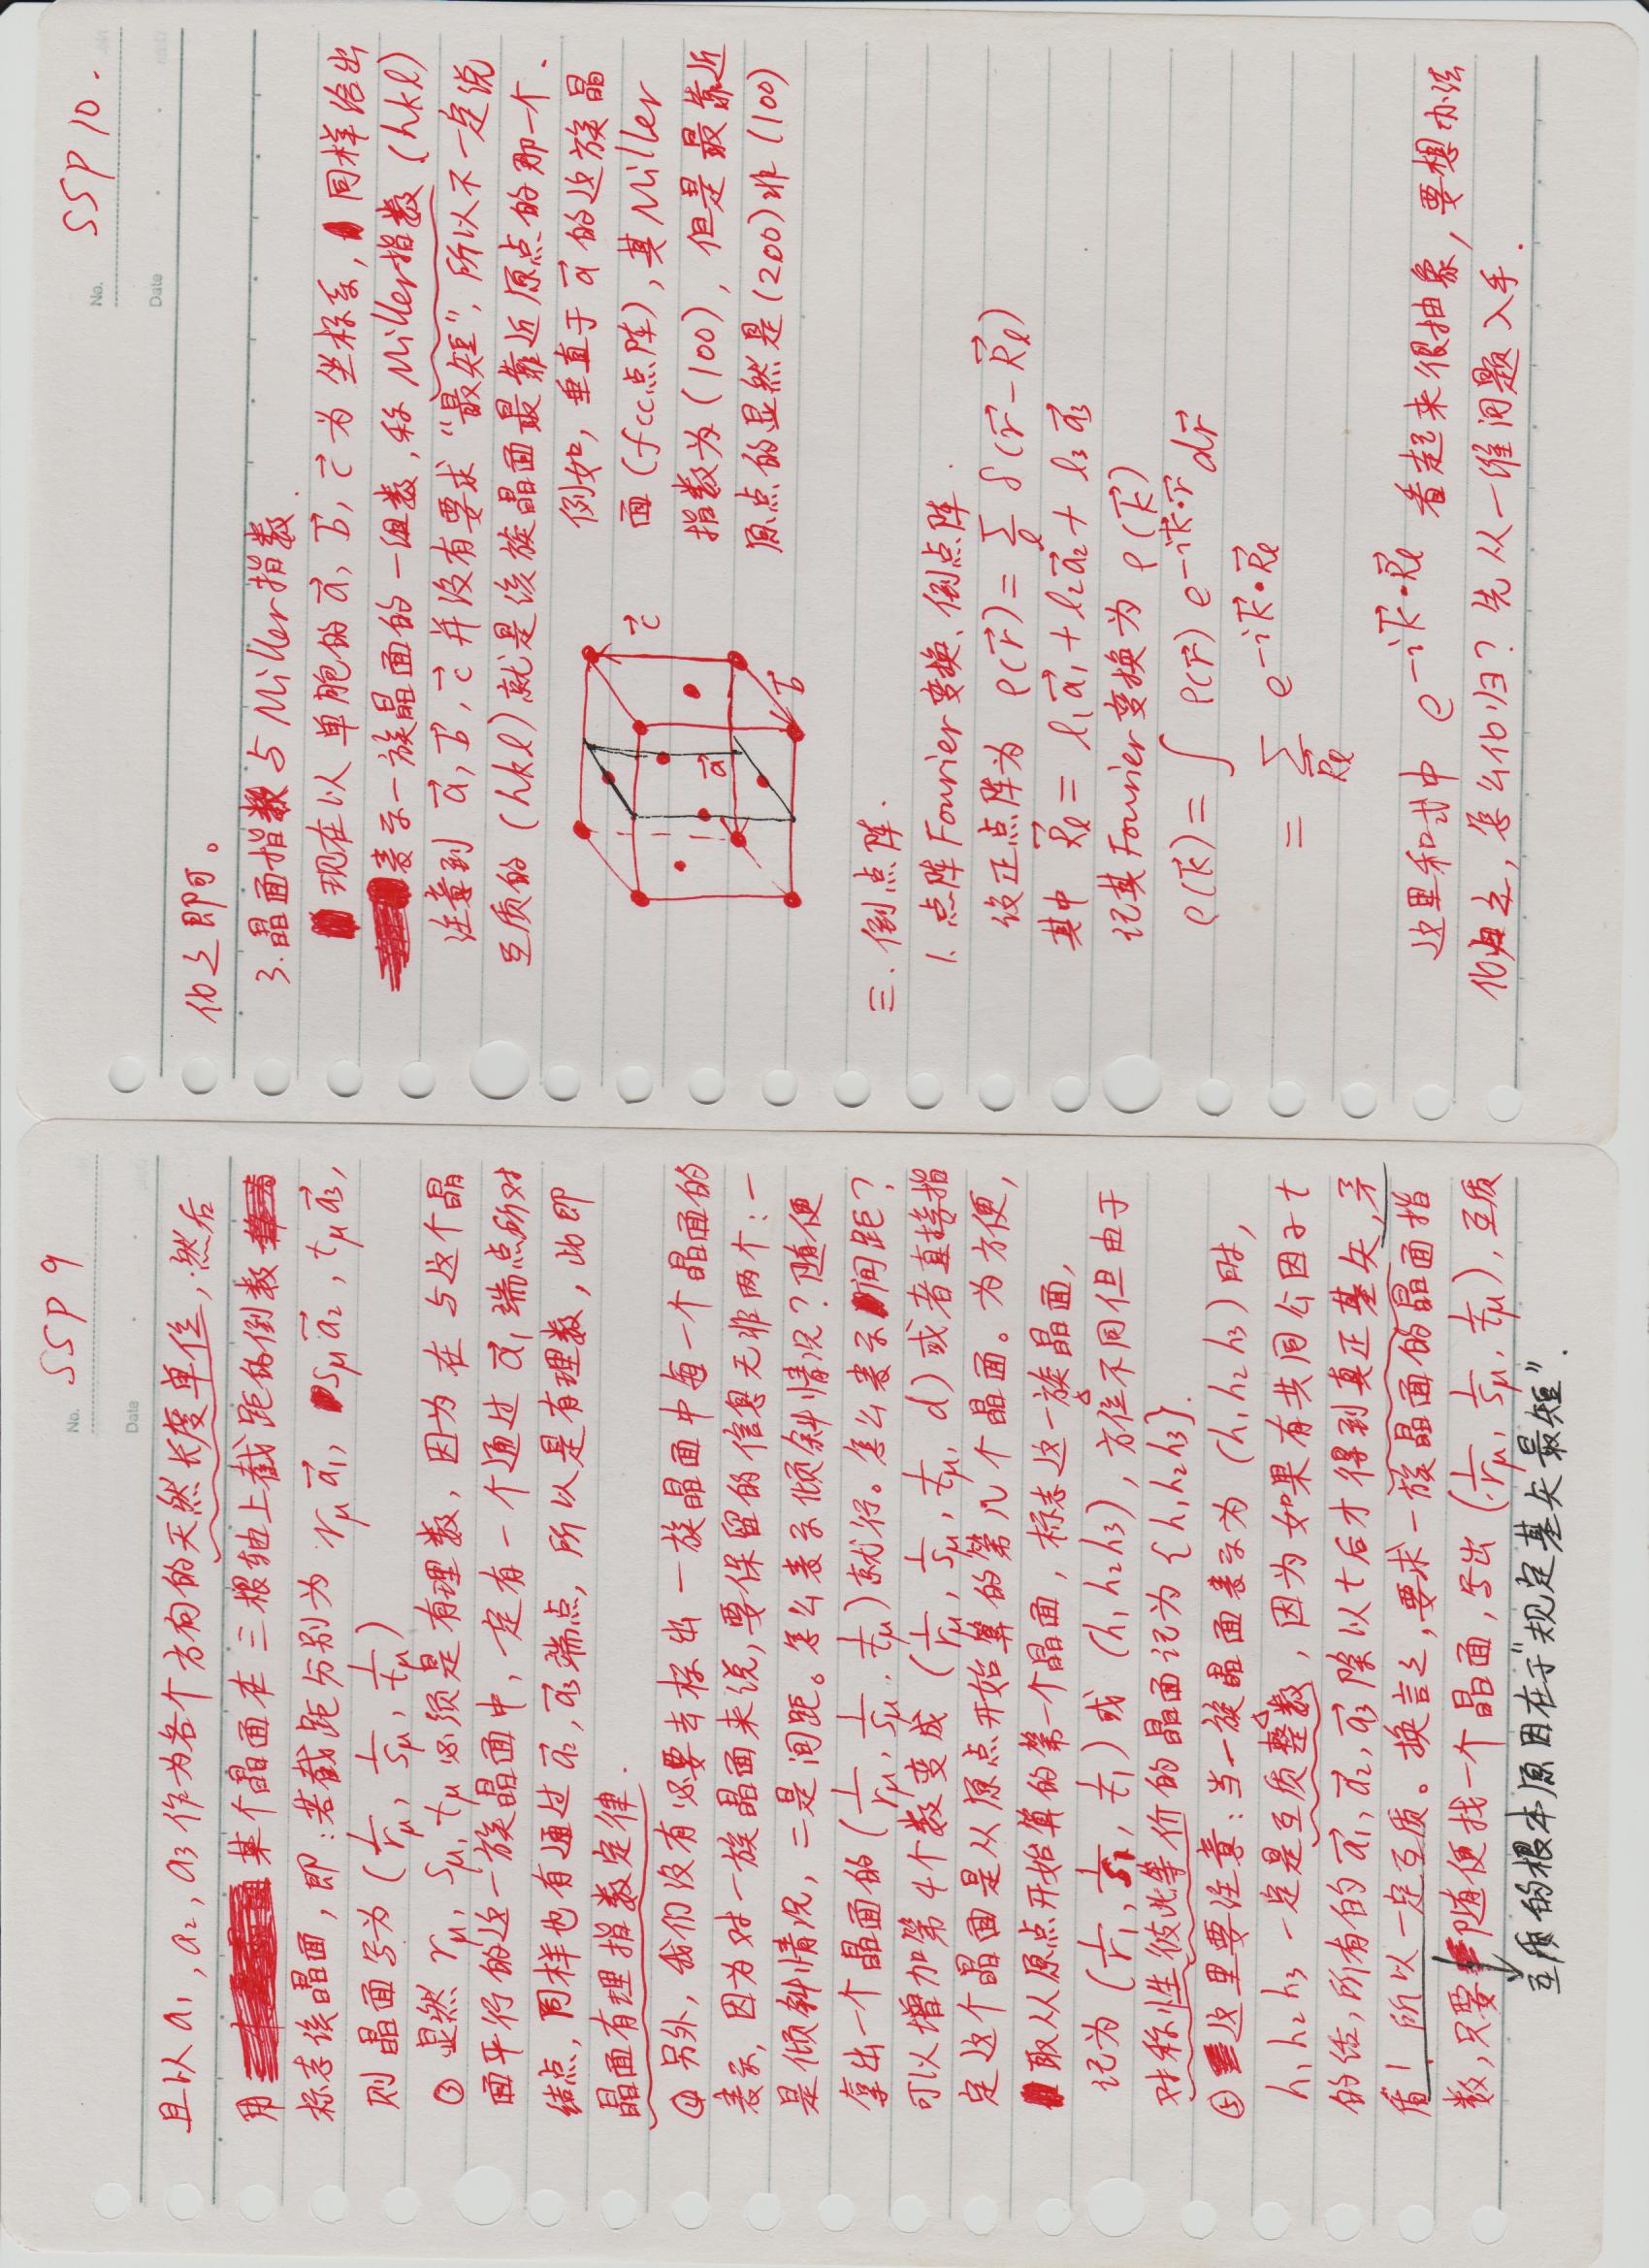 No. SSP 9
Date
且以 a₁, a₂, a₃ 作为各个方向的天然长度单位, 然后
用 某个晶面在三根轴上截距的倒数
标志该晶面, 即: 若截距分别为 rμ a⃗₁, sμ a⃗₂, tμ a⃗₃,
则晶面写为 (1/rμ, 1/sμ, 1/tμ)
③ 显然 rμ, sμ, tμ 必须是有理数, 因为在与这个晶
面平行的这一族晶面中, 一定有一个通过 a⃗₁ 端点所对
结点, 同样也有通过 a⃗₂, a⃗₃ 端点, 所以是有理数, 此即
晶面有理指数定律.
④ 另外, 我们没有必要去标出一族晶面中每一个晶面的
表示, 因为对一族晶面来说, 要保留的信息无非两个: 一
是倾斜情况, 二是间距。怎么表示倾斜情况? 随便
拿出一个晶面的 (1/rμ, 1/sμ, 1/tμ) 就行。怎么表示间距?
可以增加第4个数变成 (1/rμ, 1/sμ, 1/tμ, d) 或者直接指
定这个晶面是从原点开始算的第几个晶面。为方便,
取从原点开始算的第一个晶面, 标志这一族晶面,
记为 (1/r₁, 1/s₁, 1/t₁) 或 (h₁h₂h₃), 方位不同但由于
对称性彼此等价的晶面记为 {h₁h₂h₃}.
⑤ 这里要注意: 当一族晶面表示为 (h₁h₂h₃) 时,
h₁h₂h₃ 一定是互质整数, 因为如果有共同公因子 t
的话, 所有的 a⃗₁, a⃗₂, a⃗₃ 除以 t 后才得到真正基矢, 矛
盾! 所以一定互质。换言之, 要求一族晶面的晶面指
数, 只要随便找一个晶面, 写出 (1/rμ, 1/sμ, 1/tμ), 互质
互质的根本原因在于“规定基矢最短”.
No. SSP 10.
Date
化之即可。
3. 晶面指数与 Miller 指数.
现在以单胞的 a⃗, b⃗, c⃗ 为坐标系, 同样给出
表示一族晶面的一组数, 称 Miller 指数 (hkl)
注意到 a⃗, b⃗, c⃗ 并没有要求“最短”, 所以不一定说
互质的 (hkl) 就是该族晶面最靠近原点的那一个.
例如, 垂直于 a⃗ 的这族晶
面 (fcc点阵), 其 Miller
指数为 (100), 但是最靠近
原点的显然是 (200) 非 (100)
c⃗
a⃗
b⃗
三. 倒点阵.
1. 点阵 Fourier 变换、倒点阵.
设正点阵为 ρ(r⃗) = Σ_ℓ δ(r⃗ − R⃗ℓ)
其中 R⃗ℓ = ℓ₁a⃗₁ + ℓ₂a⃗₂ + ℓ₃a⃗₃
记其 Fourier 变换为 ρ(k⃗)
ρ(k⃗) = ∫ ρ(r⃗) e^{−ik⃗·r⃗} dr⃗
= Σ_{R⃗ℓ} e^{−ik⃗·R⃗ℓ}
这里和式中 e^{−ik⃗·R⃗ℓ} 看起来很抽象, 要想办法
化归之, 怎么化归? 先从一维问题入手.